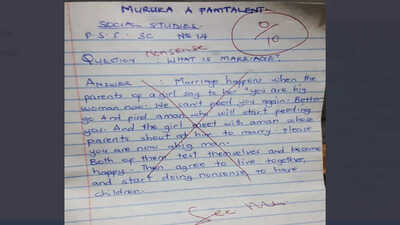 MURURA A PANTALENT
SOCIAL STUDIES
P.S.S. SC Nº 14
0/10
Nonsense
QUESTION WHAT IS MARRIAGE?
ANSWER : Marriage happens when the
parents of a girl say to her "you are big
woman now. We can't feed you again. Better
go And find aman who will start feeding
you. And the girl meet with aman whose
parents shout at him to marry please
you are now abig man.
Both of them test themselves and become
happy. Then agree to live together,
and start doing nonsense to have
children.
See Me